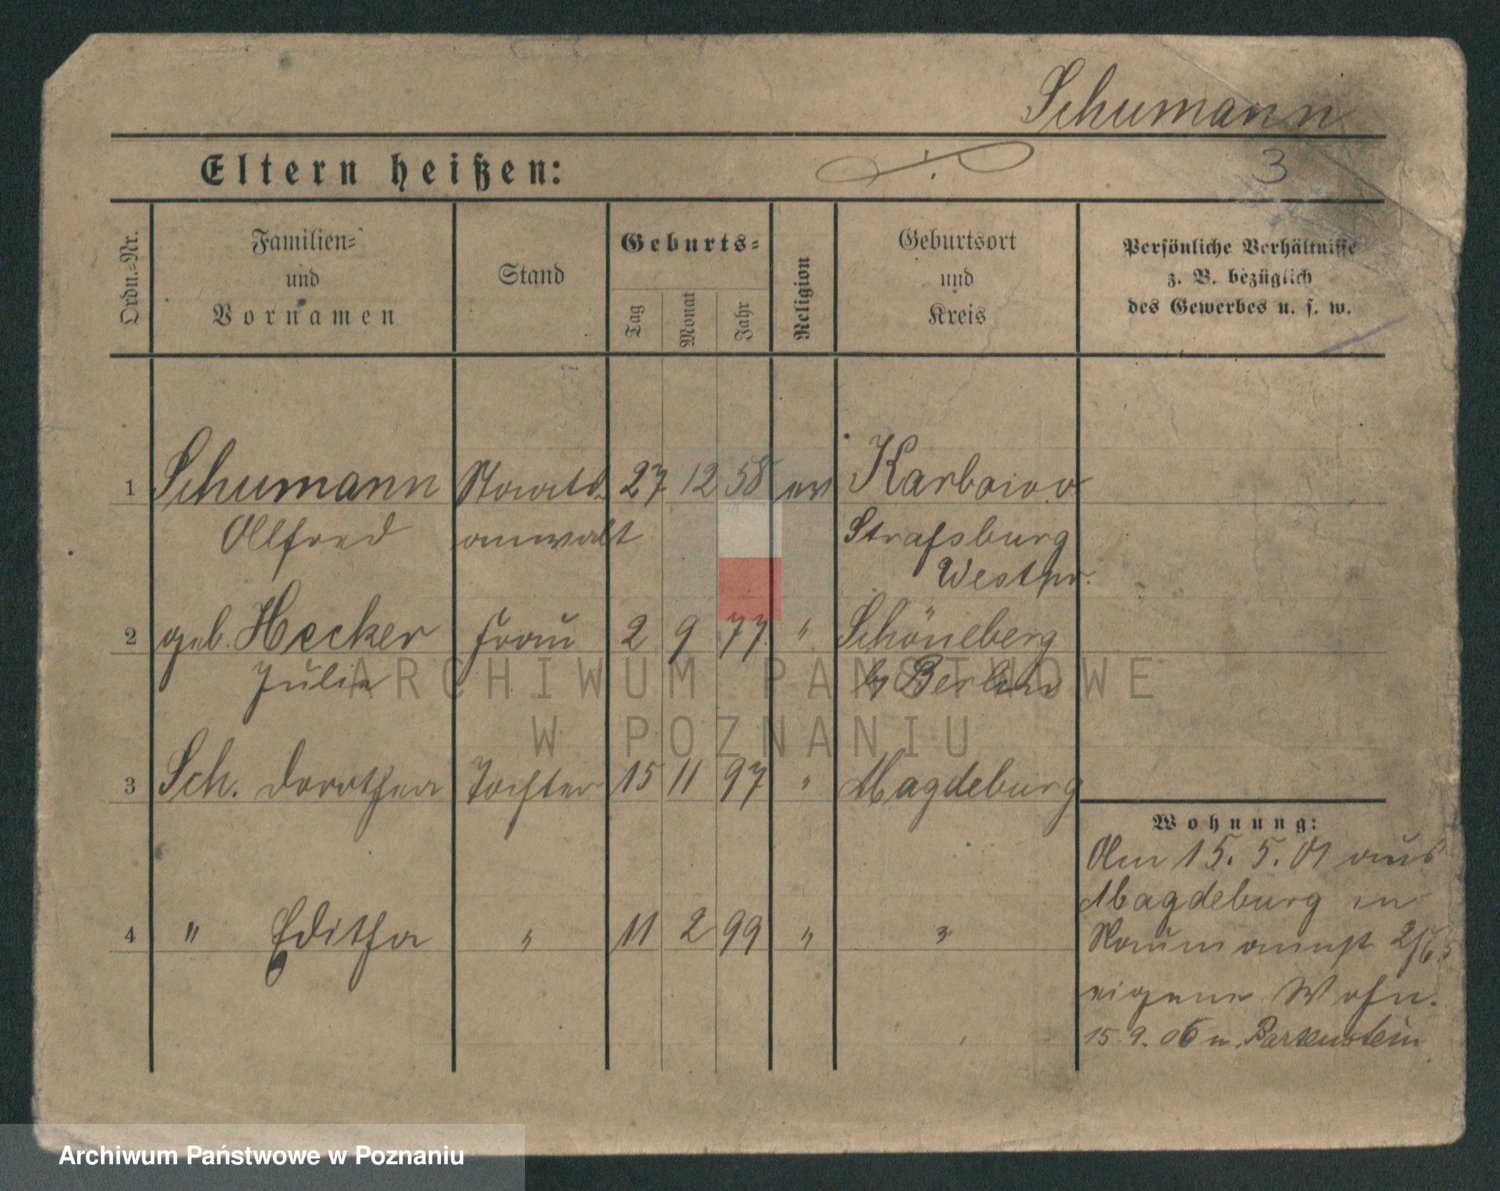 Schumann
Eltern heißen:
3
Ordn.=Nr.
Familien=
und
Vornamen
Stand
Geburts=
Tag
Monat
Jahr
Religion
Geburtsort
und
Kreis
Persönliche Verhältnisse
z. B. bezüglich
des Gewerbes u. s. w.
1 Schumann Staats- 27 12 58 ev Karbowo
Alfred anwalt Strafsburg
Westpr.
2 geb. Hecker Frau 2 9 77 " Schöneberg
Julie b/ Berlin
3 Sch. Dorothea Tochter 15 11 97 " Magdeburg
4 " Editha " 11 2 99 " "
Wohnung:
Am 15. 5. 01 aus
Magdeburg in
Naumannst
eigene Wohn.
15. 9. 06 n. Bartenstein
ARCHIWUM PAŃSTWOWE
W POZNANIU
Archiwum Państwowe w Poznaniu